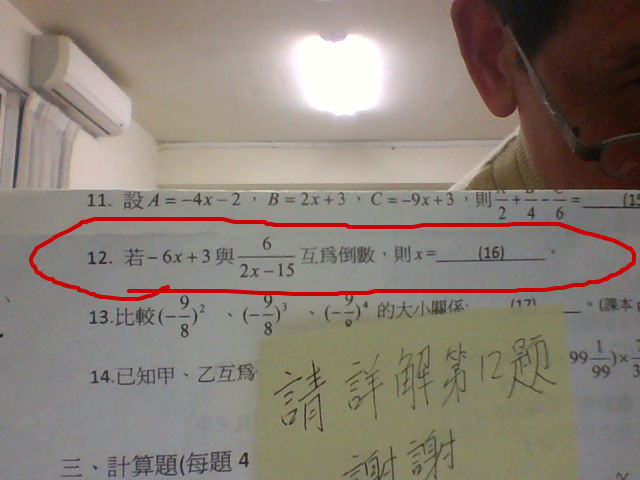 11. 設 A = −4x − 2，B = 2x + 3，C = −9x + 3，則 A/2 + B/4 − C/6 = ______(15
12. 若 − 6x + 3 與 6/(2x − 15) 互爲倒數，則 x = ______(16)______。
13.比較 (−9/8)² 、(−9/8)³ 、(−9/8)⁴ 的大小關係: (17) __。(課本
14.已知甲、乙互爲 99 1/99)×
三、計算題(每題 4
請詳解第12題
謝謝